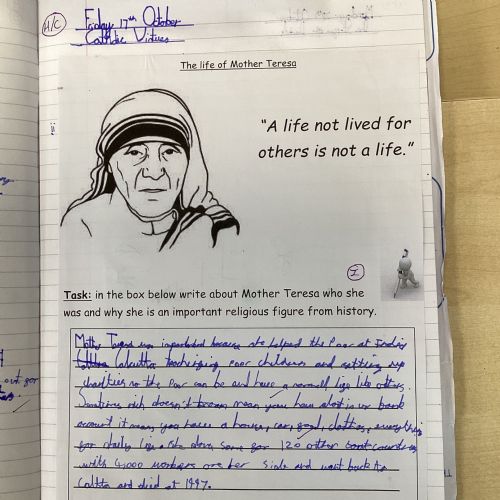 H/C
Friday 17th October
Catholic Virtues
The life of Mother Teresa
"A life not lived for
others is not a life."
I
Task: in the box below write about Mother Teresa who she
was and why she is an important religious figure from history.
Mother was because she helped the Poor at India
Calcutta poor children and setting up
charities so the Poor can be and have a life like others.
Sometimes rich doesn't mean you have alot in ur bank
account it mean you have a house, car, food, clothes, everything
for daily life she done some for 120 other
with 4,000 workers her side and went back to
and died at 1997.